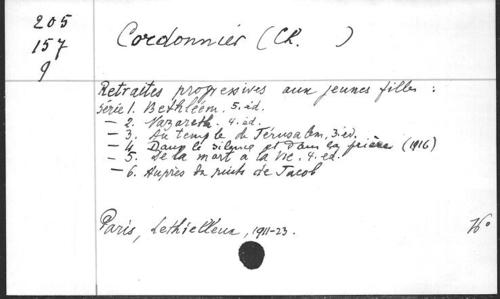 205
157
9
Cordonnier (Ch. )
Retraites progressives aux jeunes filles :
Série 1. Bethléem. 5. éd.
— 2. Nazareth. 4. éd.
— 3. Au temple de Jérusalem, 3. éd.
— 4. Dans le silence et dans la prière (1916)
— 5. De la mort à la vie. 4. éd.
— 6. Auprès du puits de Jacob
Paris, Lethielleux, 1911-23.